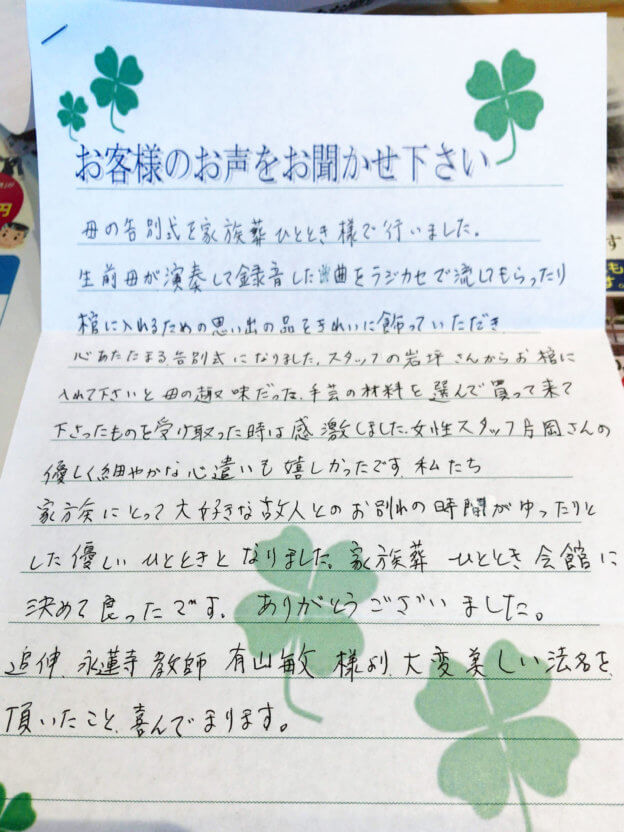 お客様のお声をお聞かせ下さい
母の告別式を家族葬ひととき様で行いました。
生前母が演奏して録音した曲をラジカセで流してもらったり
棺に入れるための思い出の品をきれいに飾っていただき、
心あたたまる告別式になりました。スタッフの岩坪さんからお棺に
入れて下さいと母の趣味だった、手芸の材料を選んで買って来て
下さったものを受け取った時は感激しました。女性スタッフ片岡さんの
優しく細やかな心遣いも嬉しかったです。私たち
家族にとって大好きな故人とのお別れの時間がゆったりと
した優しいひとときとなりました。家族葬ひととき会館に
決めて良ったです。ありがとうございました。
追伸、永蓮寺教師有山敏文様より、大変美しい法名を
頂いたこと、喜んでまります。
円
す